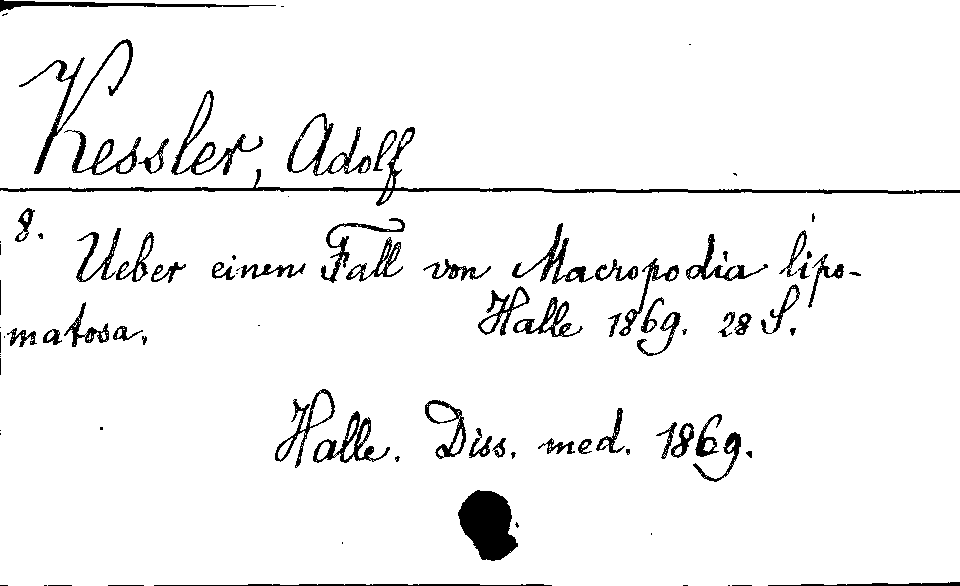 Kessler, Adolf
8.
Ueber einen Fall von Macropodia lipo-
matosa. Halle 1869. 28 S.
Halle. Diss. med. 1869.